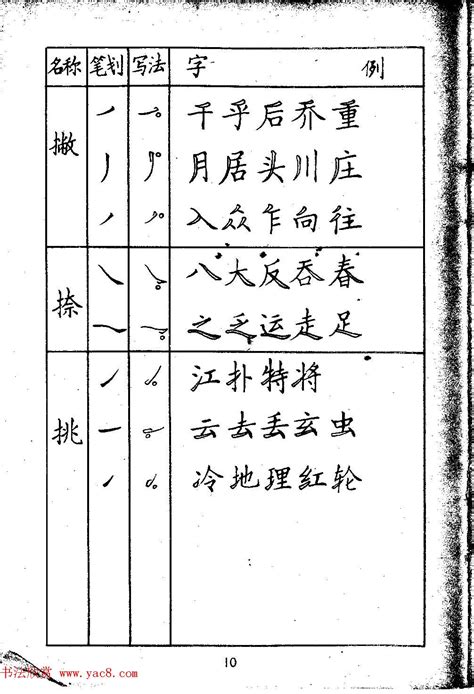 名称 笔划 写法 字 例
撇
千乎后乔重
月居头川庄
入众乍向往
捺
八大反吞春
之乏运走足
挑
江扑特将
云去丢玄虫
冷地理红轮
10
书法欣赏 www.yac8.com